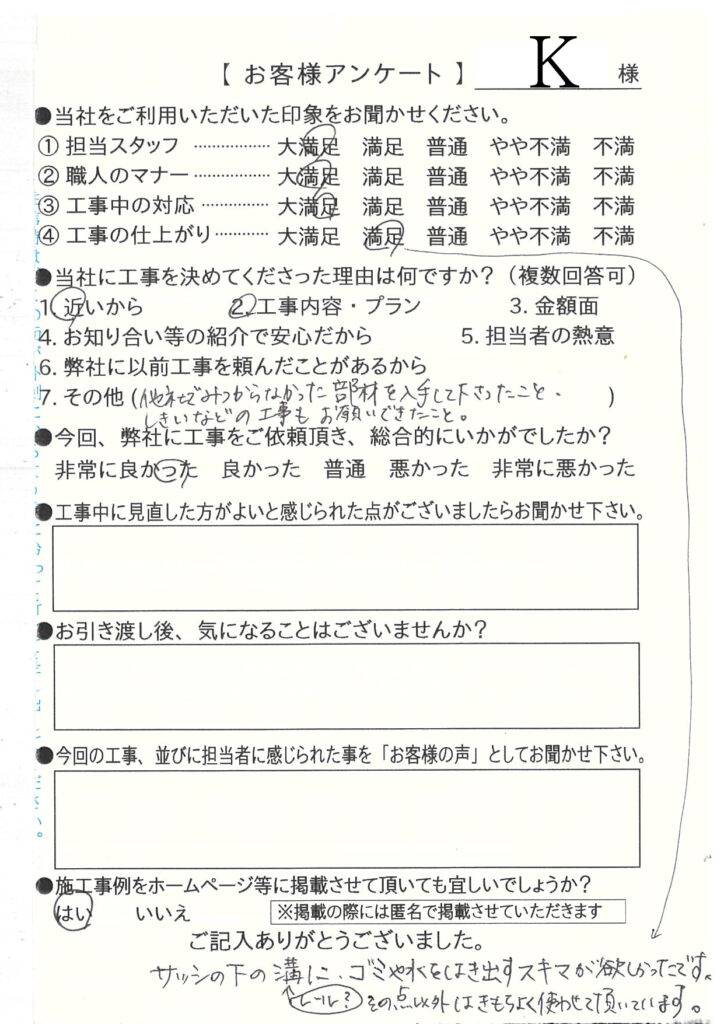 【 お客様アンケート 】 K 様
●当社をご利用いただいた印象をお聞かせください。
① 担当スタッフ ・・・・・・・・・・・・・・・ 大満足 満足 普通 やや不満 不満
② 職人のマナー ・・・・・・・・・・・・・・・ 大満足 満足 普通 やや不満 不満
③ 工事中の対応 ・・・・・・・・・・・・・ 大満足 満足 普通 やや不満 不満
④ 工事の仕上がり ・・・・・・・・・・ 大満足 満足 普通 やや不満 不満
●当社に工事を決めてくださった理由は何ですか？（複数回答可）
1. 近いから 2. 工事内容・プラン 3. 金額面
4. お知り合い等の紹介で安心だから 5. 担当者の熱意
6. 弊社に以前工事を頼んだことがあるから
7. その他 (他社でみつからなかった部材を入手して下さったこと、 )
しきいなどの工事もお願いできたこと。
●今回、弊社に工事をご依頼頂き、総合的にいかがでしたか？
非常に良かった 良かった 普通 悪かった 非常に悪かった
●工事中に見直した方がよいと感じられた点がございましたらお聞かせ下さい。
●お引き渡し後、気になることはございませんか？
●今回の工事、並びに担当者に感じられた事を「お客様の声」としてお聞かせ下さい。
●施工事例をホームページ等に掲載させて頂いても宜しいでしょうか？
はい いいえ ※掲載の際には匿名で掲載させていただきます
ご記入ありがとうございました。
サッシの下の溝に、ゴミや水をはき出すスキマが欲しかったです。
レール？ その点以外はきもちよく使わせて頂いています。